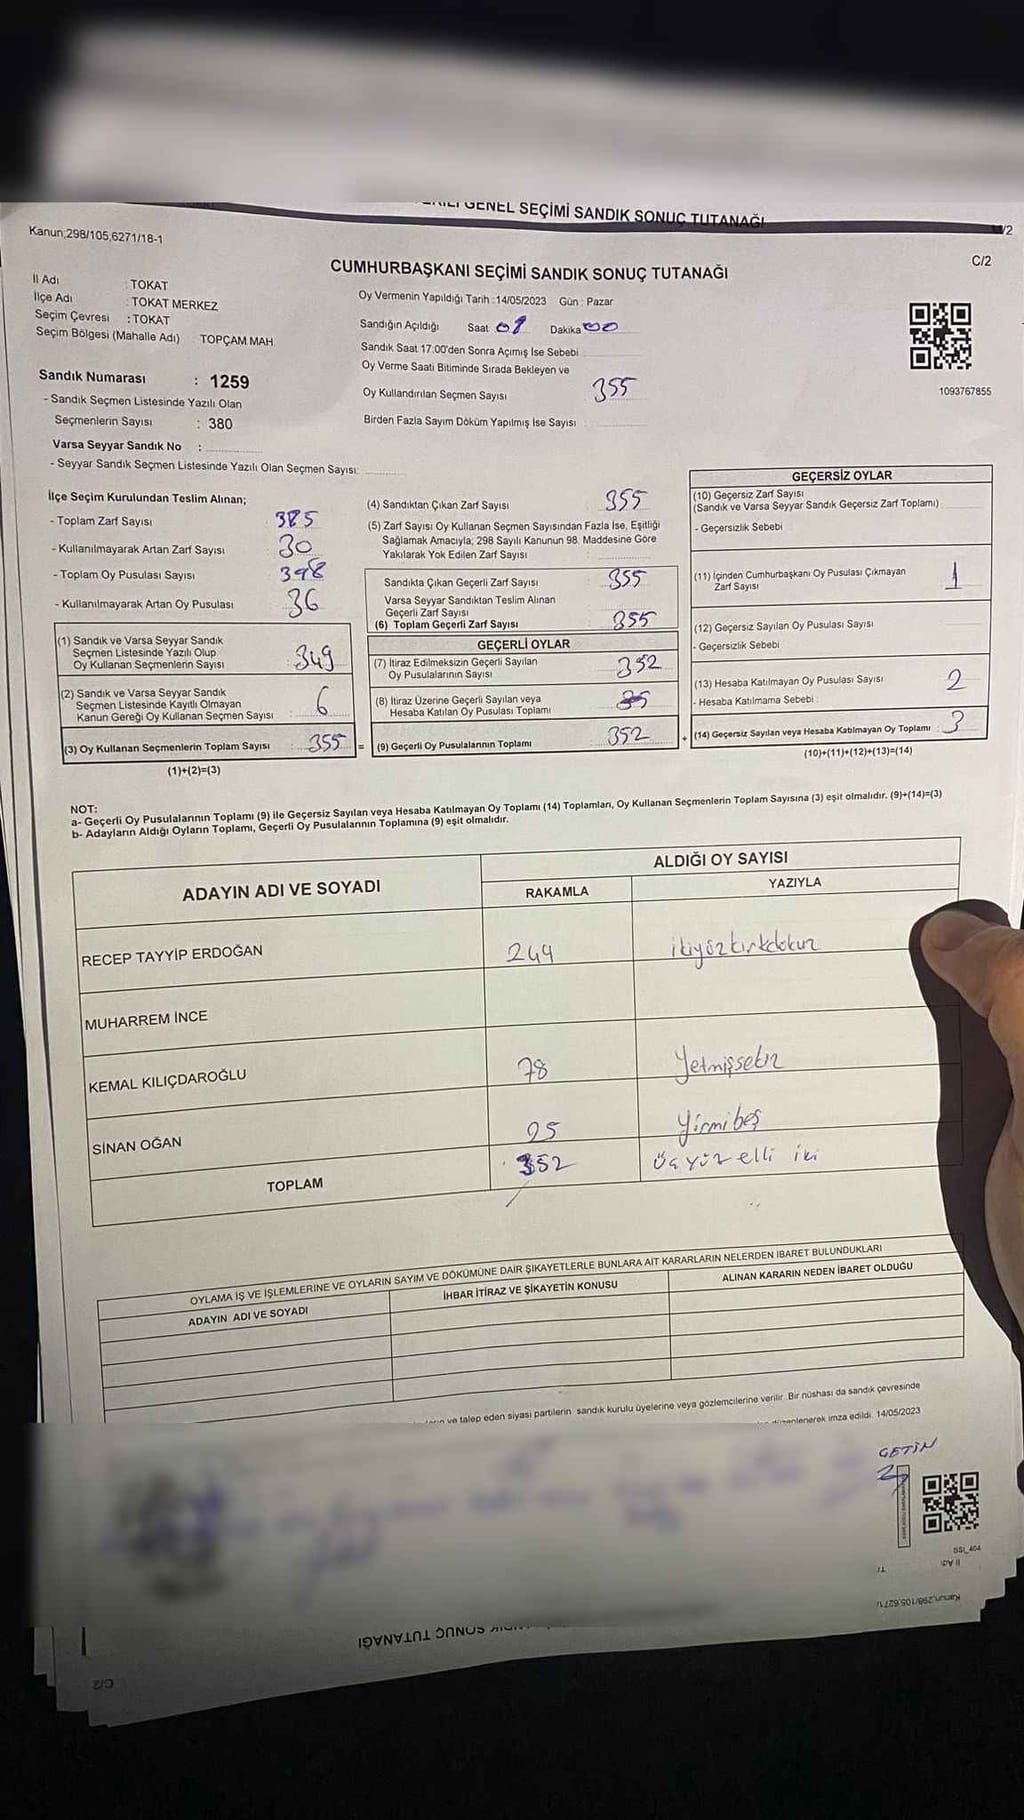 GENEL SEÇİMİ SANDIK SONUÇ TUTANAĞI
Kanun;298/105,6271/18-1
C/2
CUMHURBAŞKANI SEÇİMİ SANDIK SONUÇ TUTANAĞI
İl Adı : TOKAT
İlçe Adı : TOKAT MERKEZ
Seçim Çevresi : TOKAT
Seçim Bölgesi (Mahalle Adı) TOPÇAM MAH.
Sandık Numarası : 1259
- Sandık Seçmen Listesinde Yazılı Olan
Seçmenlerin Sayısı : 380
Varsa Seyyar Sandık No :
- Seyyar Sandık Seçmen Listesinde Yazılı Olan Seçmen Sayısı:
Oy Vermenin Yapıldığı Tarih :14/05/2023 Gün : Pazar
Sandığın Açıldığı Saat 08 Dakika 00
Sandık Saat 17:00'den Sonra Açımış İse Sebebi
Oy Verme Saati Bitiminde Sırada Bekleyen ve
Oy Kullandırılan Seçmen Sayısı 355
Birden Fazla Sayım Döküm Yapılmış İse Sayısı
1093767855
İlçe Seçim Kurulundan Teslim Alınan;
- Toplam Zarf Sayısı 385
- Kullanılmayarak Artan Zarf Sayısı 30
- Toplam Oy Pusulası Sayısı 398
- Kullanılmayarak Artan Oy Pusulası 36
(1) Sandık ve Varsa Seyyar Sandık
Seçmen Listesinde Yazılı Olup
Oy Kullanan Seçmenlerin Sayısı 349
(2) Sandık ve Varsa Seyyar Sandık
Seçmen Listesinde Kayıtlı Olmayan
Kanun Gereği Oy Kullanan Seçmen Sayısı : 6
(3) Oy Kullanan Seçmenlerin Toplam Sayısı : 355 =
(1)+(2)=(3)
(4) Sandıktan Çıkan Zarf Sayısı 355
(5) Zarf Sayısı Oy Kullanan Seçmen Sayısından Fazla İse, Eşitliği
Sağlamak Amacıyla; 298 Sayılı Kanunun 98. Maddesine Göre
Yakılarak Yok Edilen Zarf Sayısı
Sandıkta Çıkan Geçerli Zarf Sayısı 355
Varsa Seyyar Sandıktan Teslim Alınan
Geçerli Zarf Sayısı
(6) Toplam Geçerli Zarf Sayısı 355
GEÇERLİ OYLAR
(7) İtiraz Edilmeksizin Geçerli Sayılan
Oy Pusulalarının Sayısı 352
(8) İtiraz Üzerine Geçerli Sayılan veya
Hesaba Katılan Oy Pusulası Toplamı
(9) Geçerli Oy Pusulalarının Toplamı 352 +
GEÇERSİZ OYLAR
(10) Geçersiz Zarf Sayısı
(Sandık ve Varsa Seyyar Sandık Geçersiz Zarf Toplamı)
- Geçersizlik Sebebi
(11) İçinden Cumhurbaşkanı Oy Pusulası Çıkmayan
Zarf Sayısı 1
(12) Geçersiz Sayılan Oy Pusulası Sayısı
- Geçersizlik Sebebi
(13) Hesaba Katılmayan Oy Pusulası Sayısı 2
- Hesaba Katılmama Sebebi
(14) Geçersiz Sayılan veya Hesaba Katılmayan Oy Toplamı 3
(10)+(11)+(12)+(13)=(14)
NOT:
a- Geçerli Oy Pusulalarının Toplamı (9) ile Geçersiz Sayılan veya Hesaba Katılmayan Oy Toplamı (14) Toplamları, Oy Kullanan Seçmenlerin Toplam Sayısına (3) eşit olmalıdır. (9)+(14)=(3)
b- Adayların Aldığı Oyların Toplamı, Geçerli Oy Pusulalarının Toplamına (9) eşit olmalıdır.
ADAYIN ADI VE SOYADI
ALDIĞI OY SAYISI
RAKAMLA YAZIYLA
RECEP TAYYİP ERDOĞAN 249 ikiyüzkırkdokuz
MUHARREM İNCE
KEMAL KILIÇDAROĞLU 78 Yetmişsekiz
SİNAN OĞAN 25 Yirmibeş
TOPLAM 352 üçyüz elli iki
OYLAMA İŞ VE İŞLEMLERİNE VE OYLARIN SAYIM VE DÖKÜMÜNE DAİR ŞİKAYETLERLE BUNLARA AİT KARARLARIN NELERDEN İBARET BULUNDUKLARI
ADAYIN ADI VE SOYADI İHBAR İTİRAZ VE ŞİKAYETİN KONUSU ALINAN KARARIN NEDEN İBARET OLDUĞU
ve talep eden siyasi partilerin sandık kurulu üyelerine veya gözlemcilerine verilir. Bir nüshası da sandık çevresinde
düzenlenerek imza edildi. 14/05/2023
SSI_404
İl Adı
Kanun;298/105,6271/
SONUÇ TUTANAĞI
C/2